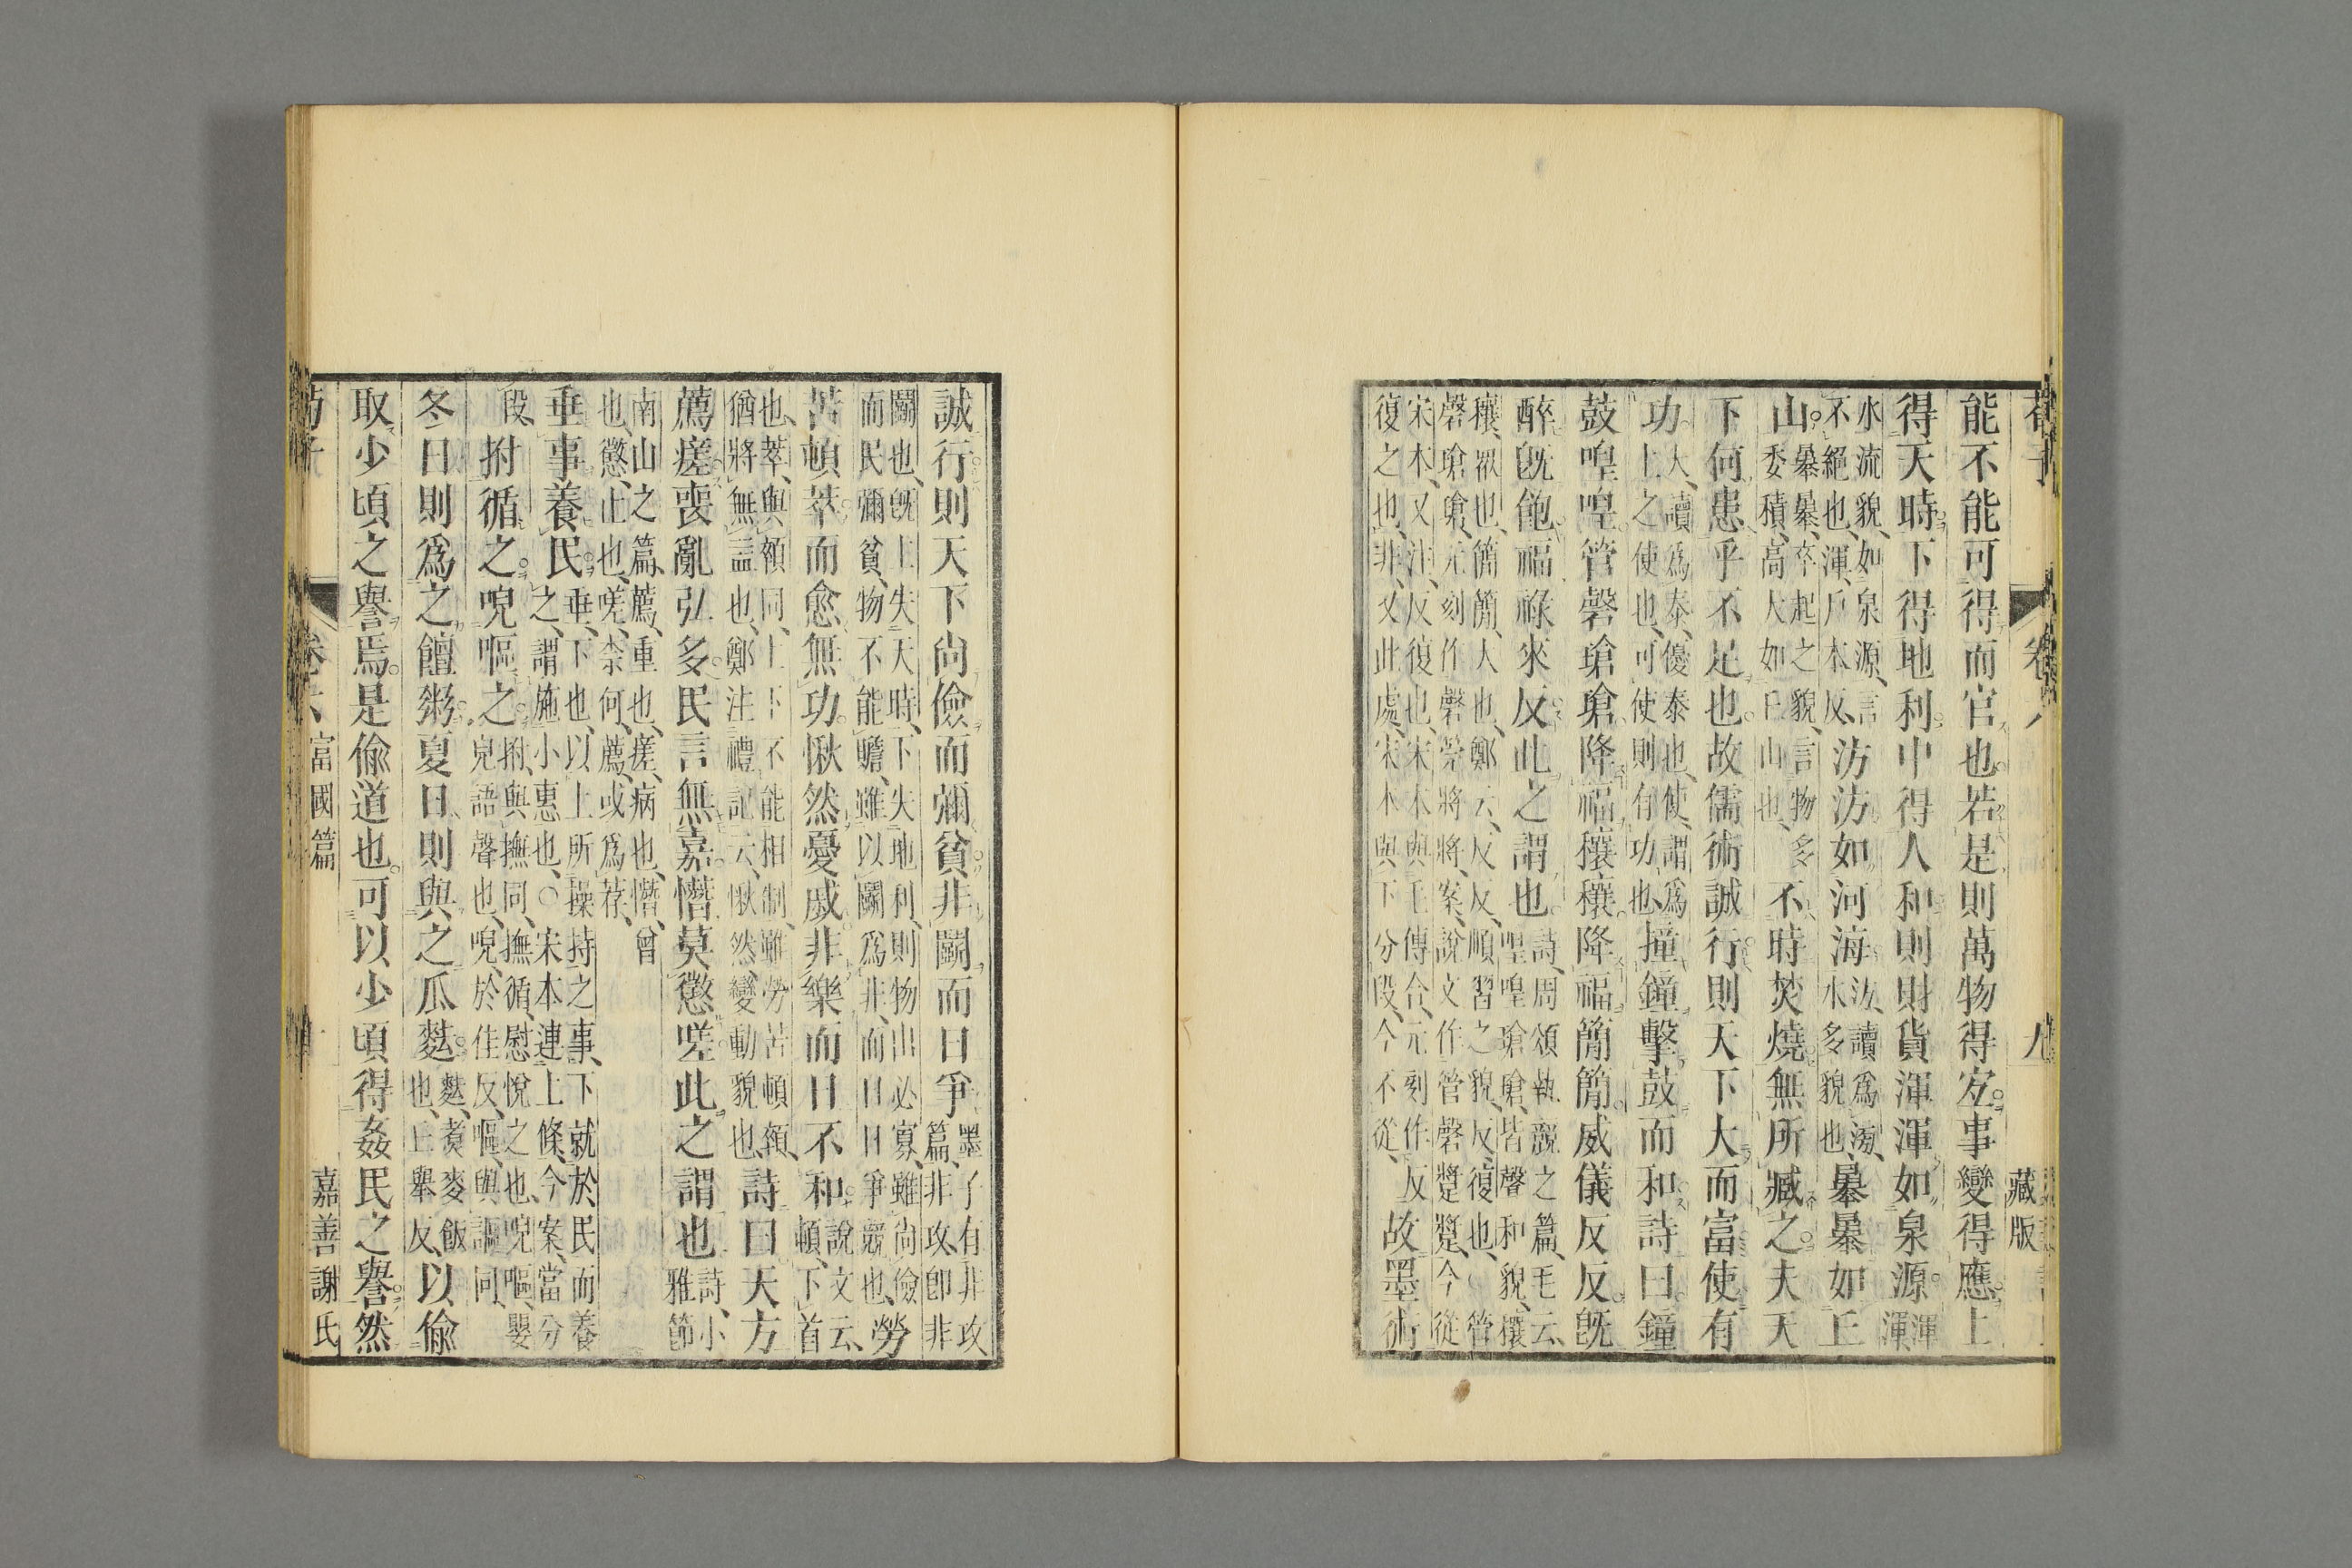 荀子 卷六 九 藏版
能不能可得而官也若是則萬物得宐事變得應上
得天時下得地利中得人和則財貨渾渾如泉源渾渾
水流貌如泉源言
不絕也渾戶本反
汸汸如河海
汸讀爲滂
水多貌也
㬥㬥如丘
山
㬥㬥卒起之貌言物多
委積高大如丘山也
不時焚燒無所臧之夫天
下何患乎不足也故儒術誠行則天下大而富使有
功
大讀爲泰優泰也使謂爲
上之使也可使則有功也
撞鐘擊鼓而和詩曰鐘
鼓喤喤管磬瑲瑲降福穰穰降福簡簡威儀反反既
醉既飽福祿來反此之謂也
詩周頌執競之篇毛云
喤喤瑲瑲皆聲和貌穰
穰衆也簡簡大也鄭云反反順習之貌反復也管
磬瑲瑲元刻作磬筦將將案說文作管磬蹩蹩今從
宋本又注反復也宋本與毛傳合元刻作反
復之也非又此處宋本與下分段今不從
故墨術
誠行則天下尚儉而彌貧非鬬而日爭
墨子有非攻
篇非攻卽非
鬬也旣上失天時下失地利則物出必寡雖尚儉
而民彌貧物不能贍雖以鬬爲非而日日爭競也
勞
苦頓萃而愈無功愀然憂戚非樂而日不和
說文云
頓下首
也萃與顇同上下不能相制雖勞苦頓顇
猶將無益也鄭注禮記云愀然變動貌也
詩曰天方
薦瘥喪亂弘多民言無嘉憯莫懲嗟此之謂也
詩小
雅節
南山之篇薦重也瘥病也憯曾
也懲止也嗟柰何薦或爲荐
垂事養民
垂下也以上所操持之事下就於民而養
之謂施小惠也○宋本連上條今案當分
段
拊循之唲嘔之
拊與撫同撫循慰悅之也唲嘔嬰
兒語聲也唲於佳反嘔與謳同
冬日則爲之饘粥夏日則與之瓜麮
麮煑麥飯
也丘舉反
以偸
取少頃之譽焉是偸道也可以少頃得姦民之譽然
荀子 卷六 富國篇 嘉善謝氏